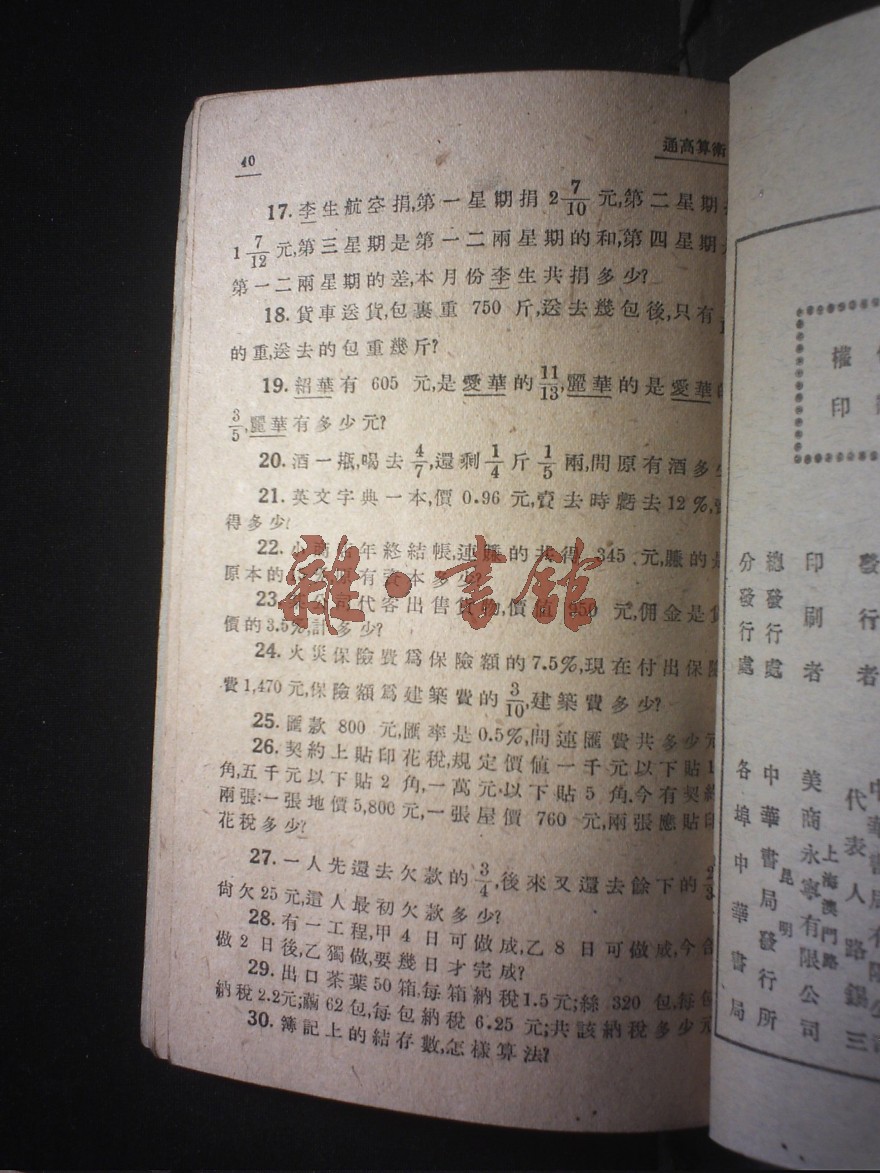 40
通高算術
17. 李生航空捐,第一星期捐 2 7/10 元,第二星期
1 7/12 元,第三星期是第一二兩星期的和,第四星期
第一二兩星期的差,本月份李生共捐多少?
18. 貨車送貨,包裹重 750 斤,送去幾包後,只有
的重,送去的包重幾斤?
19. 紹華有 605 元,是愛華的 11/13,麗華的是愛華
3/5,麗華有多少元?
20. 酒一瓶,喝去 4/7,還剩 1/4 斤 1/5 兩,問原有酒多
21. 英文字典一本,價 0.96 元,賣去時虧去 12%,
得多少?
22. 年終結帳,連賺的共得 345 元,賺的是
原本的 有資本多少?
23. 代客出售貨物,價值 元,佣金是貨
價的3.5%,計多少?
24. 火災保險費爲保險額的 7.5%,現在付出保險
費1,470元,保險額爲建築費的 3/10,建築費多少?
25. 匯款 800 元,匯率是 0.5%,問連匯費共多少元
26. 契約上貼印花稅,規定價值一千元以下貼1
角,五千元以下貼 2 角,一萬元以下貼 5 角.今有契約
兩張:一張地價5,800元,一張屋價 760 元,兩張應貼印
花稅多少?
27. 一人先還去欠款的 3/4,後來又還去餘下的 2/3
尙欠25元,這人最初欠款多少?
28. 有一工程,甲 4 日可做成,乙 8 日可做成,今合
做 2 日後,乙獨做,要幾日才完成?
29. 出口茶葉50箱,每箱納稅1.5元;絲 320 包,每包
納稅2.2元;繭62包,每包納稅 6.25 元;共該納稅多少元
30. 簿記上的結存數,怎樣算法?
雜·書館
權
印
發行者
印刷者
總發行處
分發行處
中華書局有限公司
代表人路錫三
上海澳門路
美商永寧有限公司
昆明
中華書局發行所
各埠中華書局